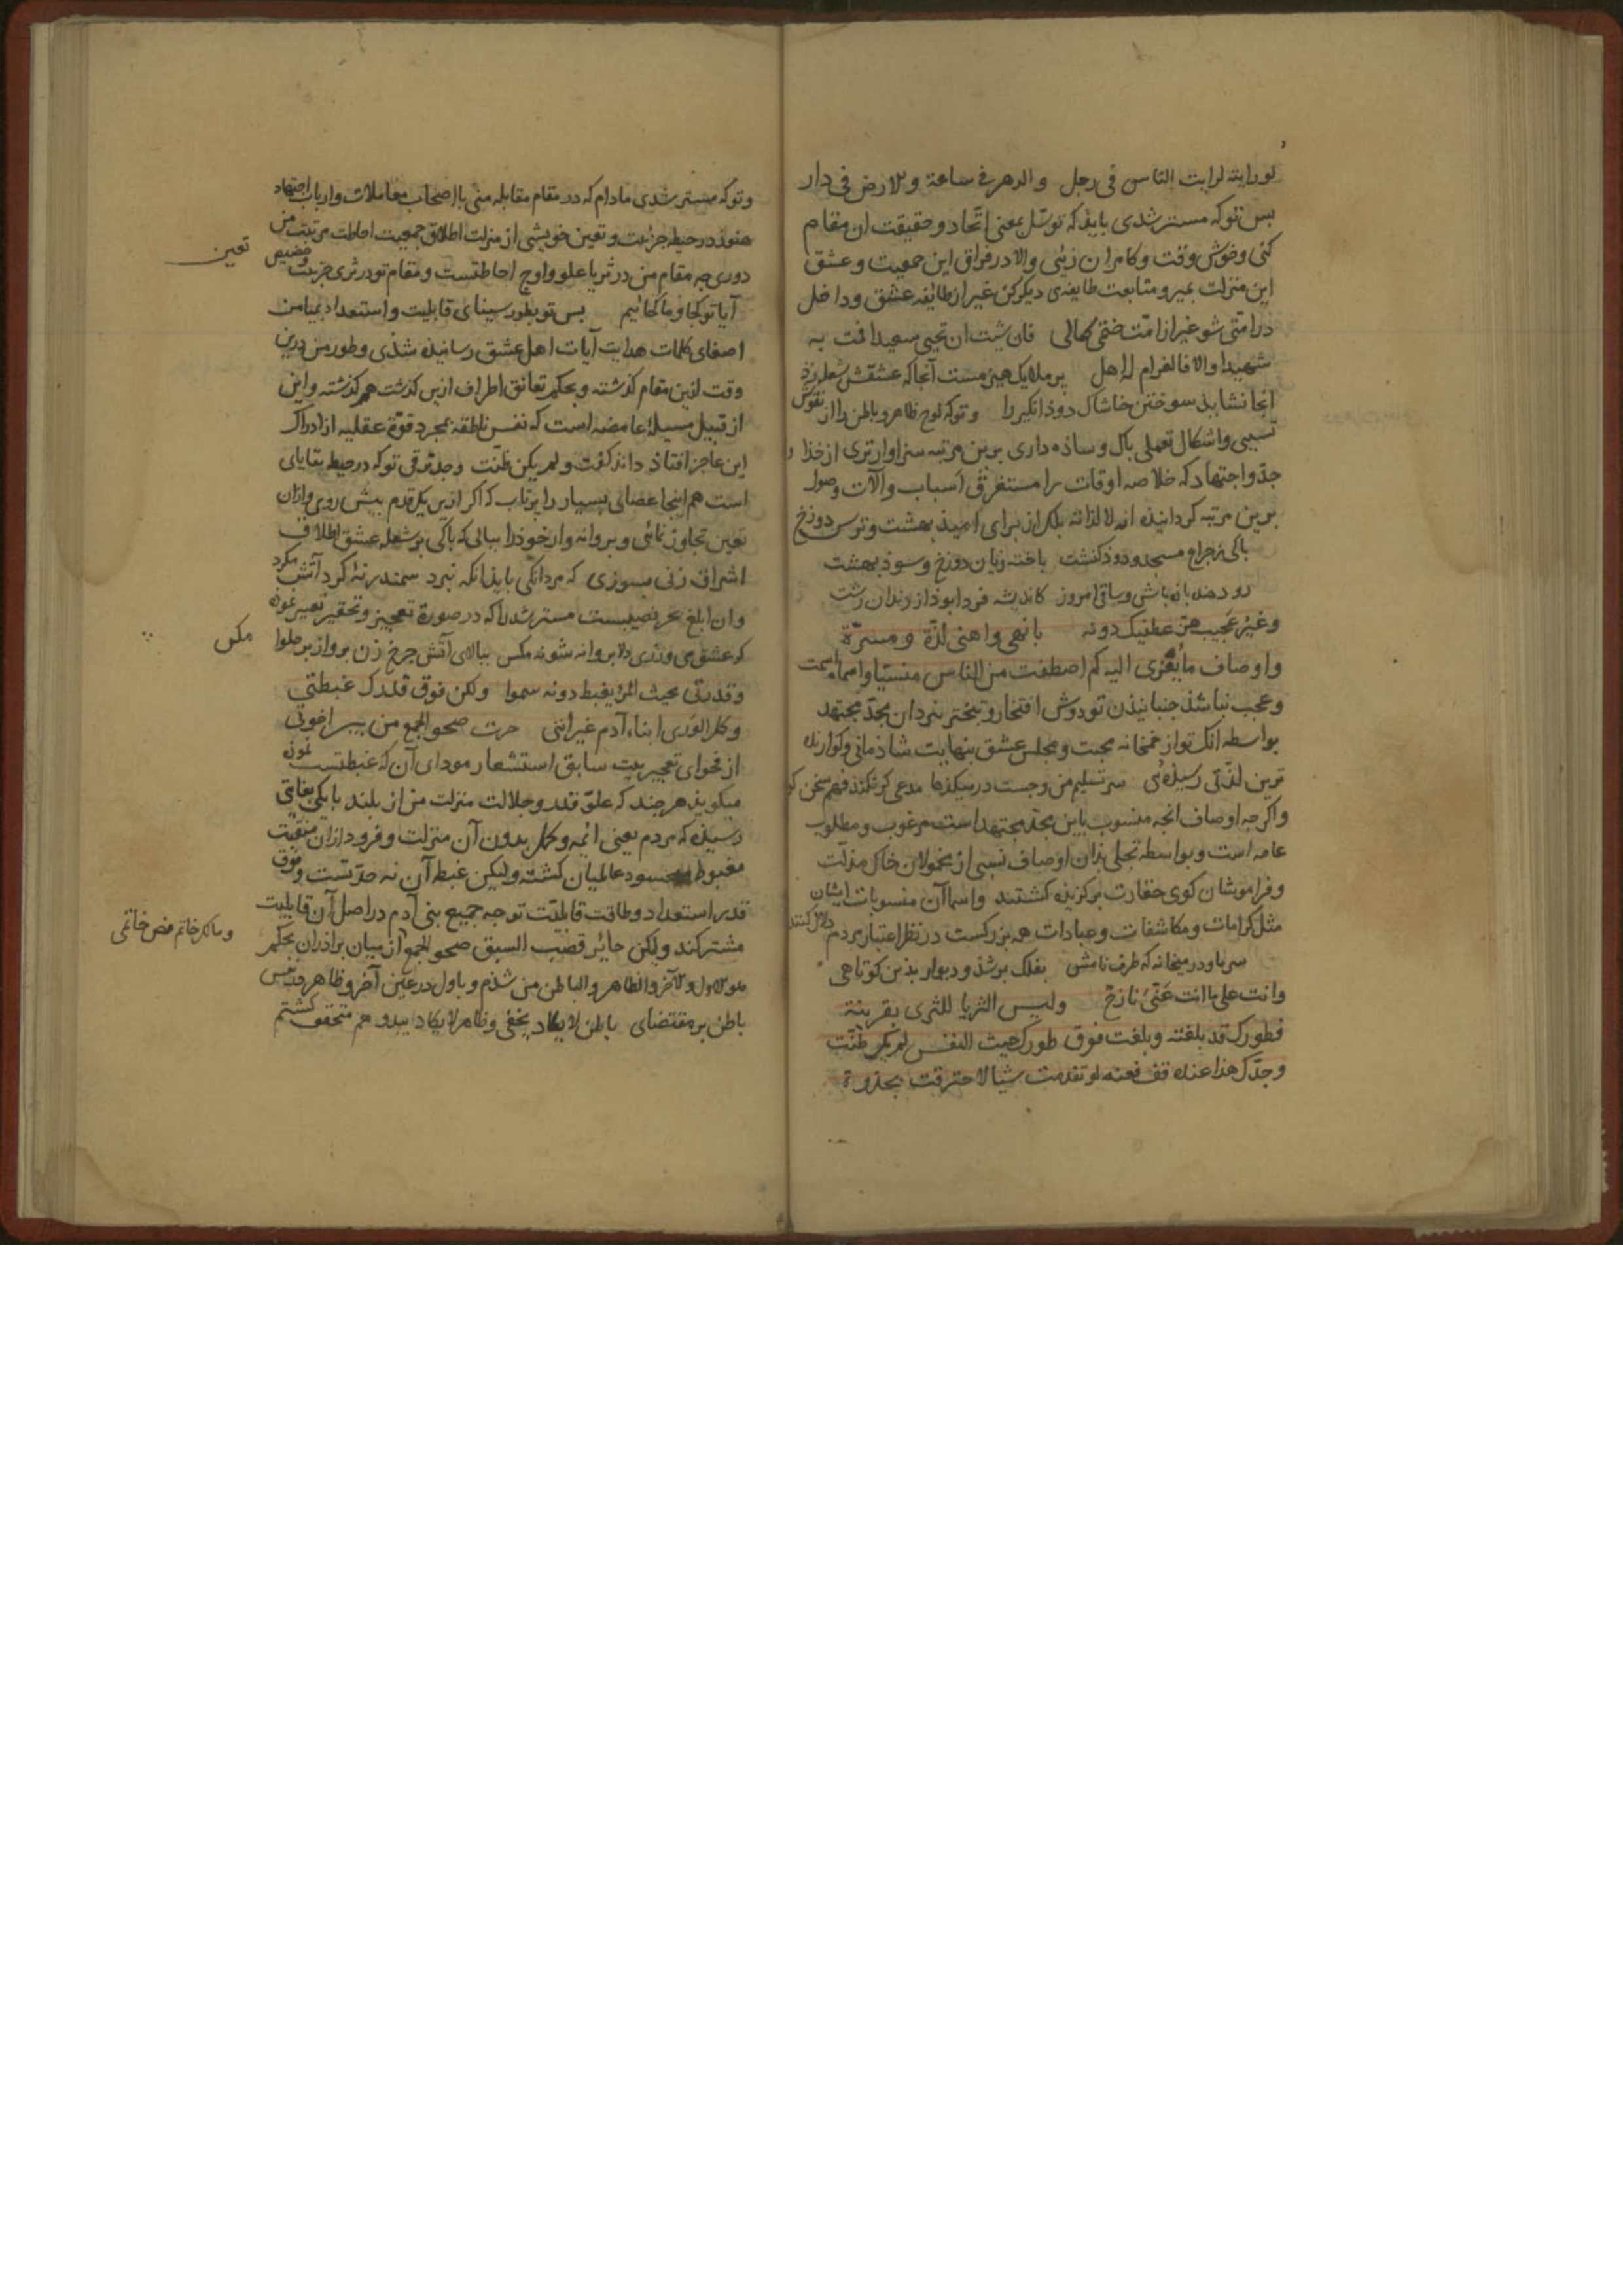 لورایته لرایت الناس فی رجل والدهر فی ساعة والارض فی دار
بس تو که مسترشدی بایذ که توسّل بمعنی اتّحاد و حقیقت ان مقام
کنی و خوش وقت و کامران زئی والا در فراق این جمعیت و عشق
این منزلت بمیر و متابعت طایفهٔ دیکر کن غیر از طایفه عشق و داخل
در امتی شو غیر از امّت ختمی کمالی فان شیت ان تحیی سعیدا فمت به
شهیدا والا فالغرام له اهل بر ملایک هین مست آنجا که عشقش شعله زذ
انجا نشایذ سوختن خاشاک دوذ انکیز را و تو که لوح ظاهر و باطن را از نقوش
نسبی و اشکال تعملی باک و ساذه داری برین مرتبه سزاوارتری از خذاوند
جدّ و اجتهاد که خلاصه اوقات را مستغرق اسباب و آلات وصول
برین مرتبه کردانیذه انه لا لذاته بلکه از برای امیذ بهشت و ترس دوزخ
تاکی ز چراغ مسجد و دود کنشت باخته زیان دوزخ و سوذ بهشت
رو باده باش و ساقی امروز کاندیشه فردا بوذ از رندان زشت
وغیر عجیب هز عطفیک دونه باهنی وانهی لذّة و مسرّة
و اوصاف ما یعزی الیه کم اصطفت من الناس منسیا واسماه اسمت
و عجب نباشذ جنبانیذن تو دوش افتخار و تبختر بنزد ان مجدّ مجتهد
بواسطه انک تو از خمخانه محبت و مجلس عشق بنهایت شاذمانی و کوارنده
ترین لذّتی رسیذهٔ سر تسلیم من و خشت در میکذها مدعی کر نکند فهم سخن کو
و اکرچه اوصاف انچه منسوب باین مجدّ مجتهد است مرغوب و مطلوب
عامه است و بواسطه تجلی بذان اوصاف نسبی از مخمولان خاک مذلّت
و فراموشان کوی حقارت برکزیذه کشتند و اسما آن منسوبات ایشان
مثل کرامات و مکاشفات و عبادات همه بزرکست در نظر اعتبار مردم
سر ما و در میخانه که طرف بامش بفلک بر شذ و دیوار بذین کوتاهی
وانت علی ما انت عنّی نازح ولیس الثریا للثری بقرینة
فطورک قد بلغته وبلغت فوق طورک حیث النفس لم یک ظنّت
وحدّک هذا عنده قف فعنه لو تقدمت شیا لاحترقت بجذوة
و تو که مسترشدی مادام که در مقام مقابله منی با اصحاب معاملات و ارباب اجتهاد
هنوز در حیطهٔ جزئیت و تعین خویشی از منزلت اطلاق جمعیت احاطت مرتبت من
دوری چه مقام من در ثریا علو و اوج احاطتست و مقام تو در ثری جزئیت
تعین
آیا تو کجا و ما کجائیم بس تو بطور سینای قابلیت و استعداد بمیامن
اصغای کلمات هدایت آیات اهل عشق رسانیذه شذی و طور من درین
وقت ازین مقام کذشته و بحکم تعانق اطراف ازین کذشت هم کذشته و این
از قبیل مسیلهٔ غامضه است که نفس ناطقه بمجرد قوّة عقلیه از ادراک
این عاجز افتاذ داند کفت و لم یکن ظنّت و حد ترقی تو که در حیطهٔ بقایای
است هم اینجا عصای بسیار را برتاب که اکر ازین یک قدم بیش روی و از ان
تعین تجاوز نمائی و بروانه وار خوذ را ببالی که باکی بر شعله عشق اطلاق
اشراق زنی بسوزی که مردانکی بایذ انکه نبرد سمندر نهٔ کرد آتش مکرد
و ان ابلغ تحریضیست مسترشد را که در صورة تعجیز و تحقیر تعییر نموذه
کر عشق می ورزی دلا بروانه شو نه مکس ببالای آتش جرخ زن برواز بر حلوا
مکس
وقدری بحیث المرء یغبط دونه سموا ولکن فوق قدرک غبطتی
وکل الوری ابناء آدم غیر اننی حزت صحو الجمع من بین اخوتی
از فحوای تعجیز بیت سابق استشعار مودای آن که غبطتست نموذه
میکویذ هر چند که علوّ قدر و جلالت منزلت من از بلند بایکی بغایتی
رسیذه که مردم یعنی ائمه و کمّل بدون آن منزلت و فروداز ان منقبت
مغبوط محسود عالمیان کشته ولیکن غبطه آن نه حدّ تست و فوق
قدر استعداد و طاقت قابلیّت تو چه جمیع بنی آدم در اصل آن قابلیت
مشترکند ولکن حائز قصب السبق صحو الجمع از میان برادران بحکم
و مالک خاتم فص خاتمی
هو الاول والآخر والظاهر والباطن من شذم و باول در عین آخر و ظاهر
باطن بر مقتضای باطن لا یکاد یخفی و ظاهر لا یکاد یبدو هم متحقق کشتم